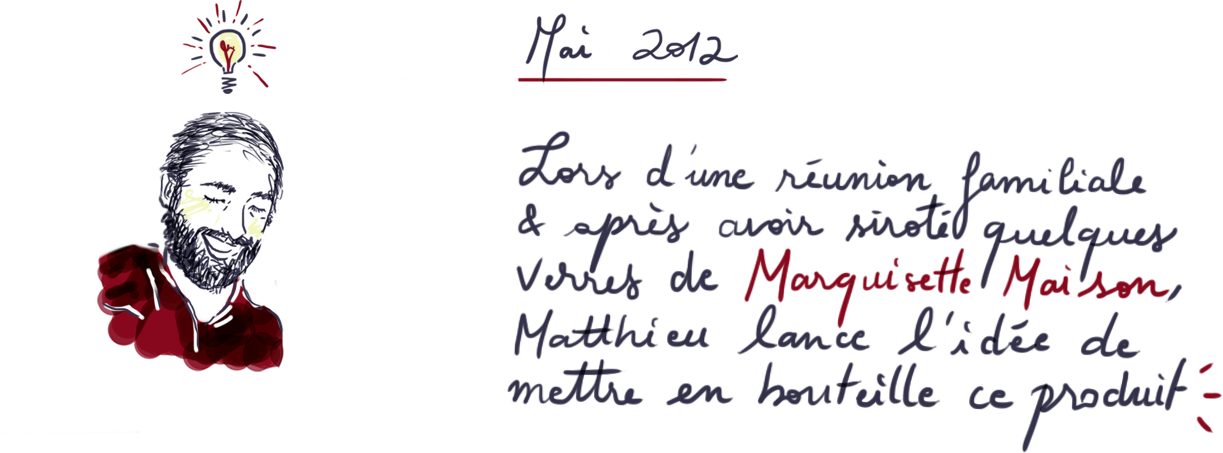 Mai 2012
Lors d'une réunion familiale
& après avoir siroté quelques
verres de Marquisette Maison,
Matthieu lance l'idée de
mettre en bouteille ce produit